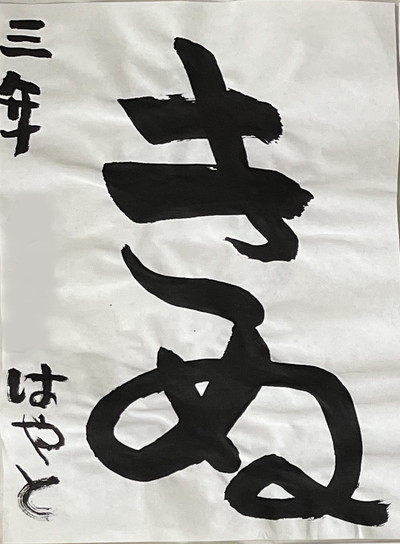 きぬ
三年 はやと